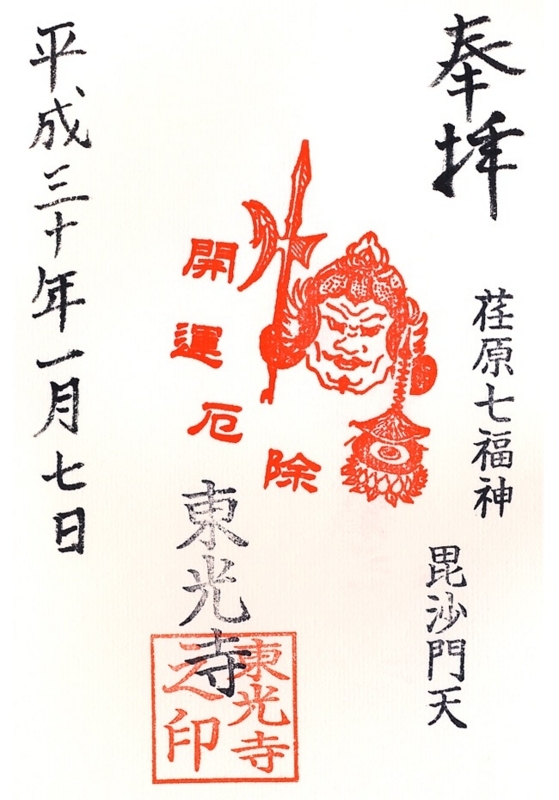 奉拝
荏原七福神
毘沙門天
開運厄除
東光寺
東光寺
之印
平成三十年一月七日